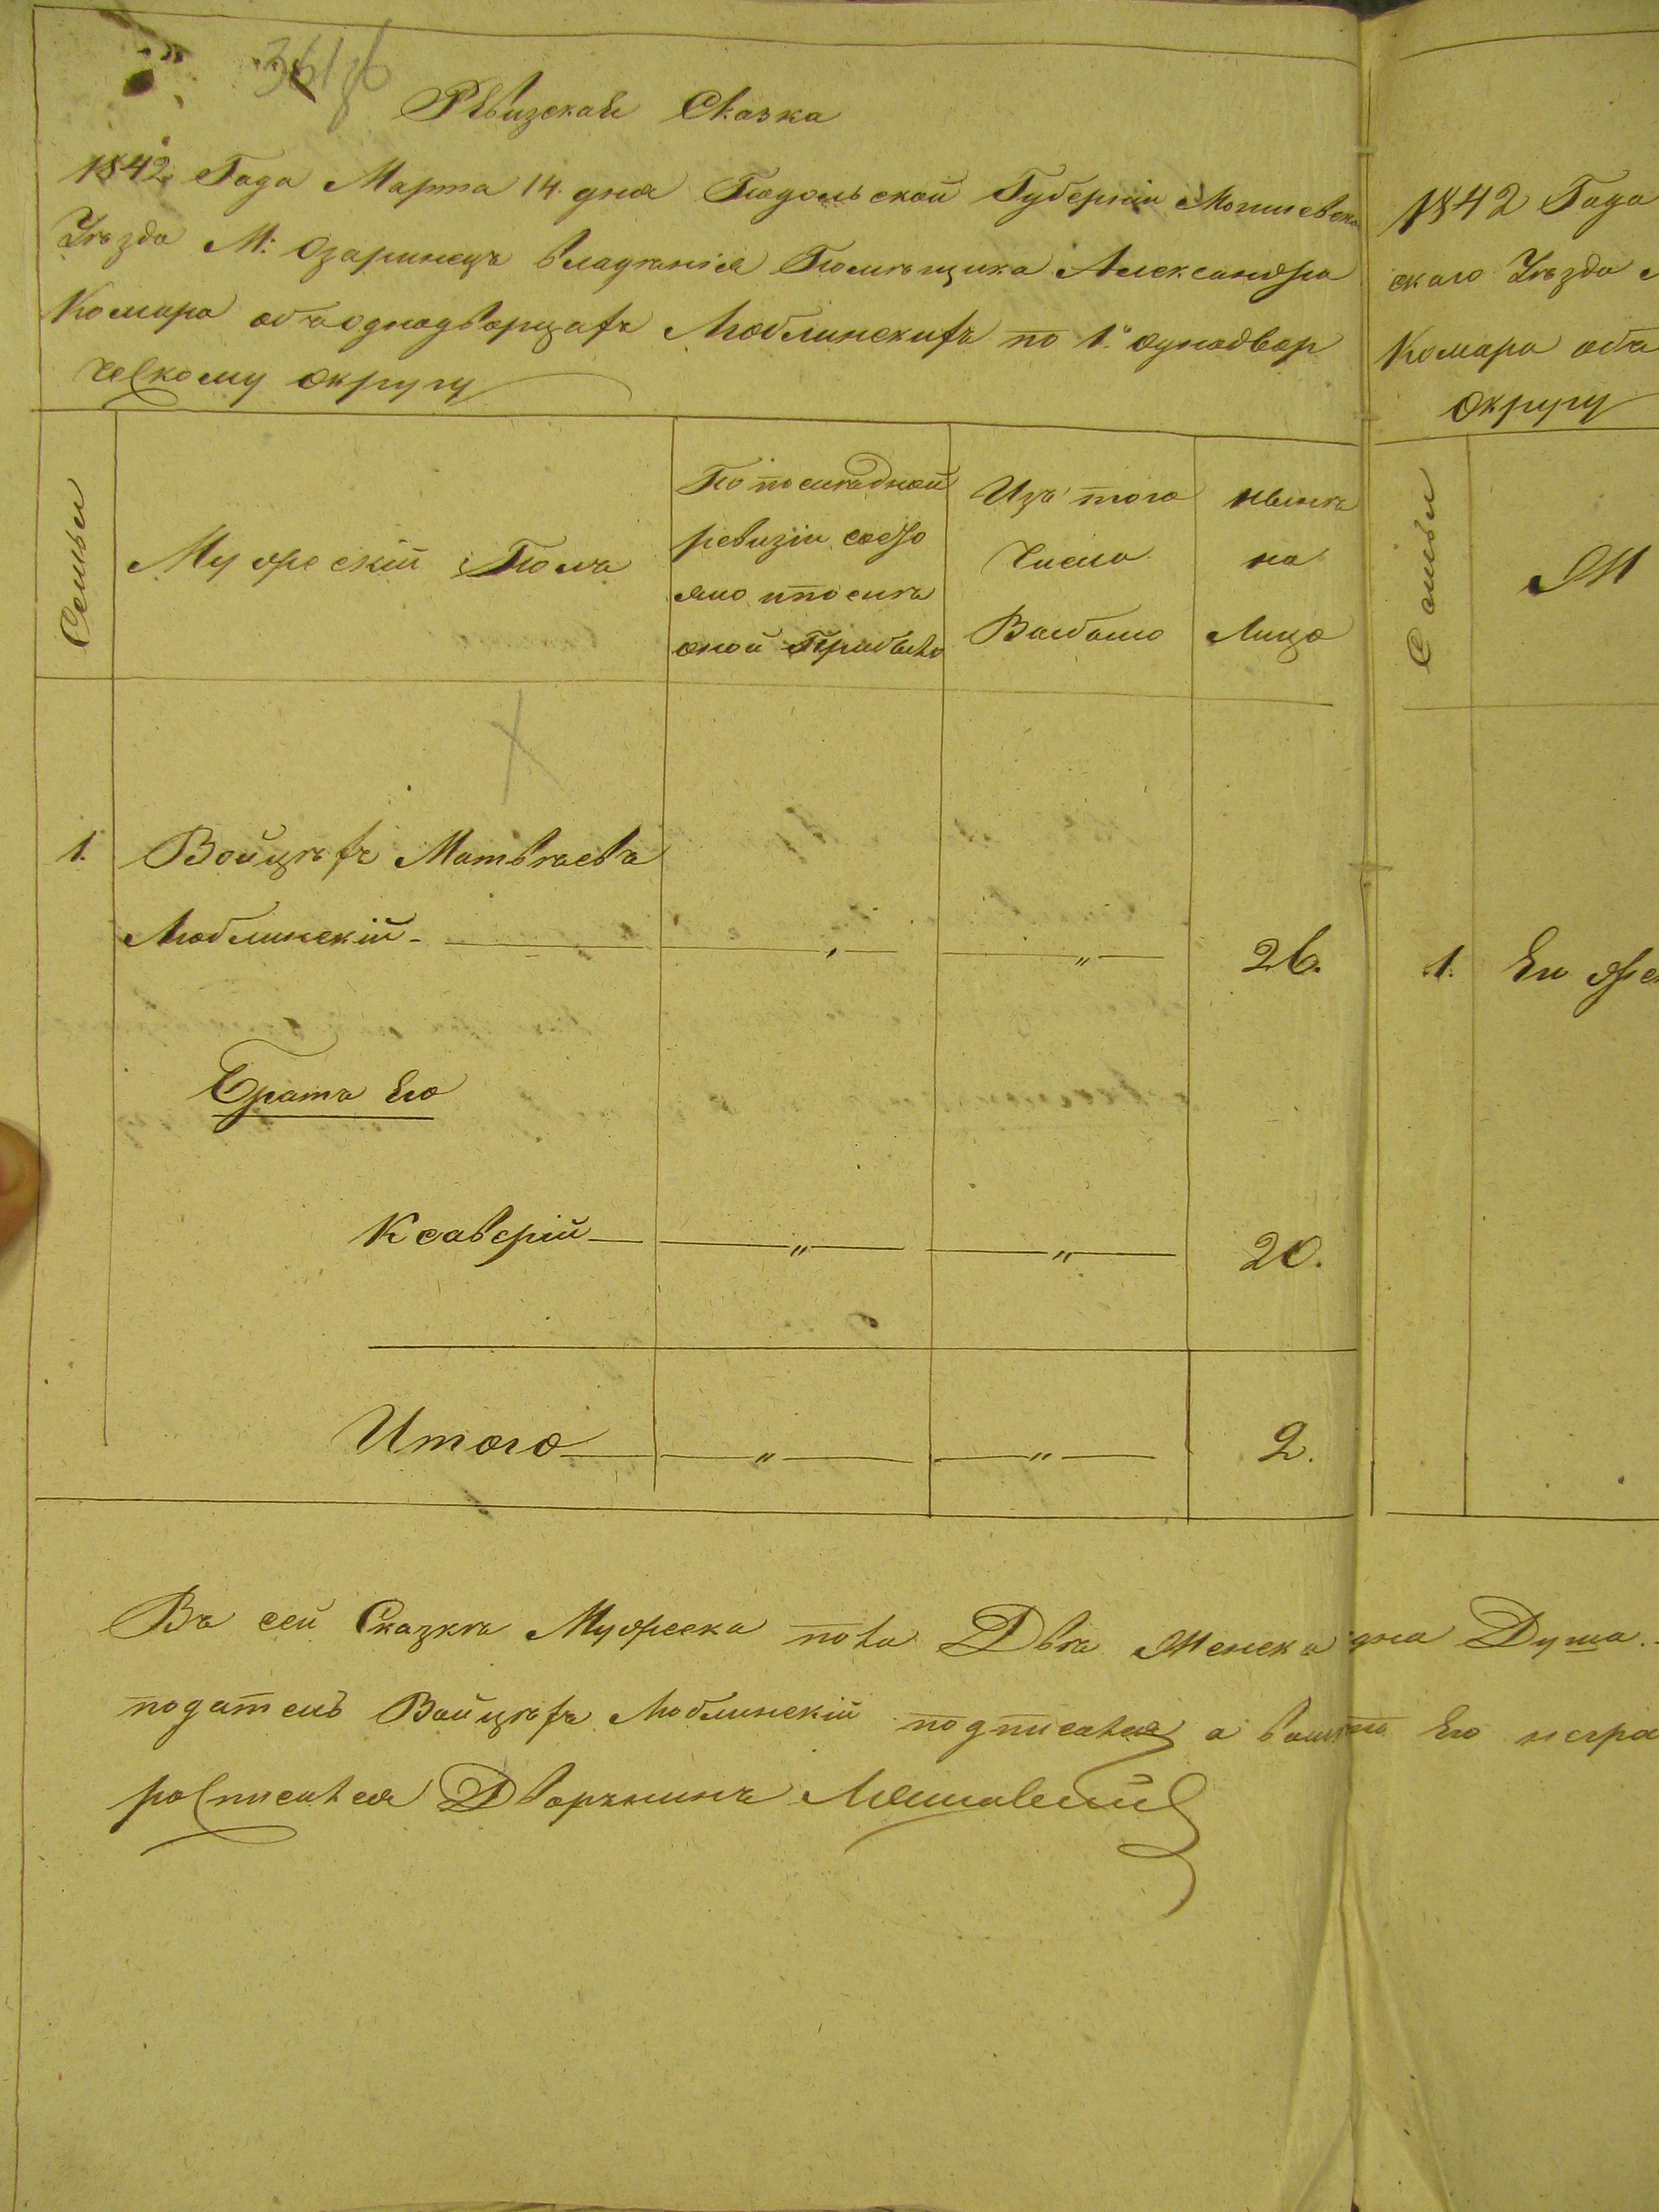 361 76
Рѣвизская Сказка
1842 Года Марта 14 дня Подольской Губерніи Могилевска
Уѣзда М: Озаринецъ владѣнія Помѣщика Александра
Комара объ однодворцахъ Люблинскихъ по 1º однодвор
ческому округу
Семьи
Мужескій Полъ
По последней
ревизіи состо
яло и после
оной Прибыло
Изъ того
Числа
Выбыло
нынѣ
на
Лицо
1. Войцѣхъ Матвѣевъ
Люблинскій - „ „ 26.
Братъ Его
Ксаверій „ „ 20.
Итого „ „ 2.
Въ сей Сказкѣ Мужеска пола Двѣ Женска дна Душа.
податель Войцѣхъ Люблинскій подписался а вмѣсто Его негра
росписался Дворянинъ
1842 Года
скаго Уѣзда
Комара объ
округу
Семьи
Ж
1. Ен